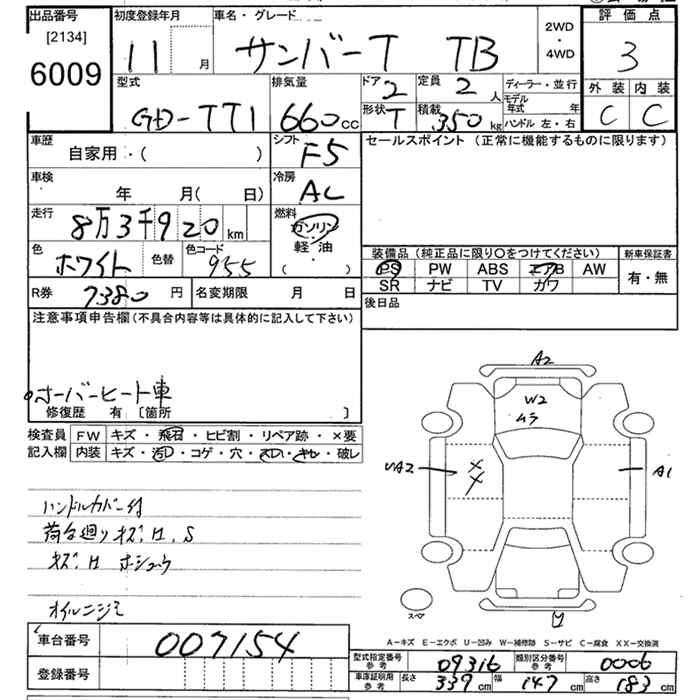 出品番号 初度登録年月 車名・グレード 評価点
[2134] 11 月 サンバーT TB 2WD・4WD 3
6009
型式 排気量 ドア 2 定員 2 人 ディーラー・並行 外装 内装
GD-TT1 660 cc 形状 T 積載 350 kg モデル年式 年 C C
ハンドル 左・右
車歴 自家用・( ) シフト F5 セールスポイント (正常に機能するものに限ります)
車検 年 月( 日) 冷房 AC
走行 8万3千920 km 燃料 ガソリン
軽・油
( )
色 ホワイト 色替 色コード 955 装備品 (純正品に限り○をつけてください) 新車保証書
PS PW ABS エアB AW 有・無
SR ナビ TV カワ
R券 7380 円 名変期限 月 日
後日品
注意事項申告欄 (不具合内容等は具体的に記入して下さい)
オーバーヒート車
修復歴 有 〔箇所 〕
検査員 FW キズ・飛石・ヒビ割・リペア跡・×要
記入欄 内装 キズ・汚れ・コゲ・穴・スレ・キレ・破レ
A2
W2
ムラ
UA2
A1
ハンドルカバー付
荷台廻りキズ、H、S
キズ H ホシュウ
オイルニジミ
スペア
A−キズ E−エクボ U−凹み W−補修跡 S−サビ C−腐食 XX−交換済
車台番号 007154
登録番号
型式指定番号 参考 09316 類別区分番号 参考 0006
車庫証明用 参考 長さ 339 cm 幅 147 cm 高さ 183 cm